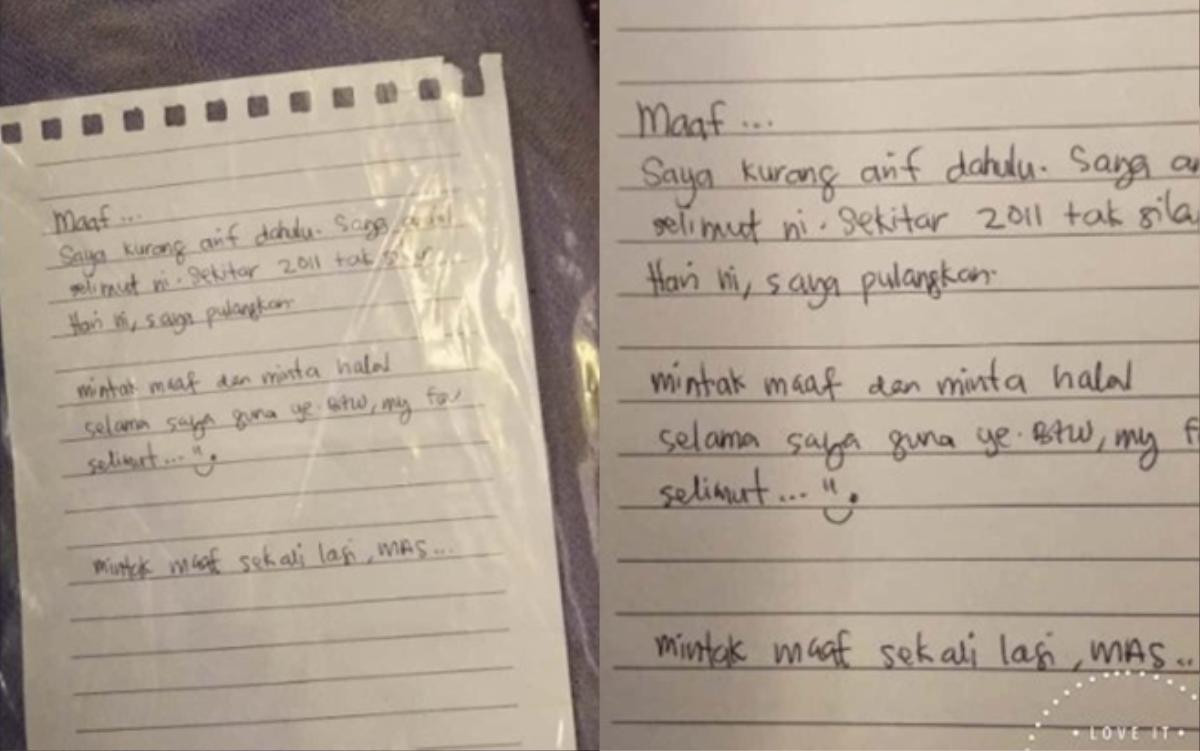 Maaf...
Saya kurang arif dahulu. Saya
selimut ni. Sekitar 2011 tak
Hari ni, saya pulangkan
mintak maaf dan minta halal
selama saya guna ye. BTW, my fav
selimut... ".
mintak maaf sekali lagi, MAS...
Maaf...
Saya kurang arif dahulu. Saya a
selimut ni. Sekitar 2011 tak sila
Hari ni, saya pulangkan.
mintak maaf dan minta halal
selama saya guna ye. BTW, my f
selimut... ".
mintak maaf sekali lagi, MAS..
• LOVE IT •